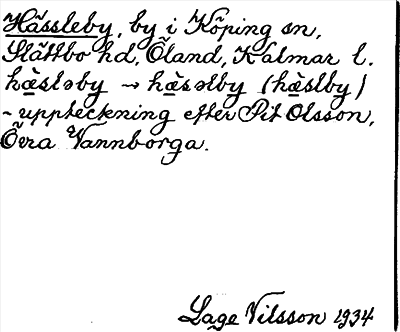 Hässleby, by i Köping sn,
Slättbo hd, Öland, Kalmar l.
hæ̀sləby → hæ̀səlby (hæ̀slby)
- uppteckning efter Pit Olsson,
Övra Vannborga.
Lage Nilsson 1934